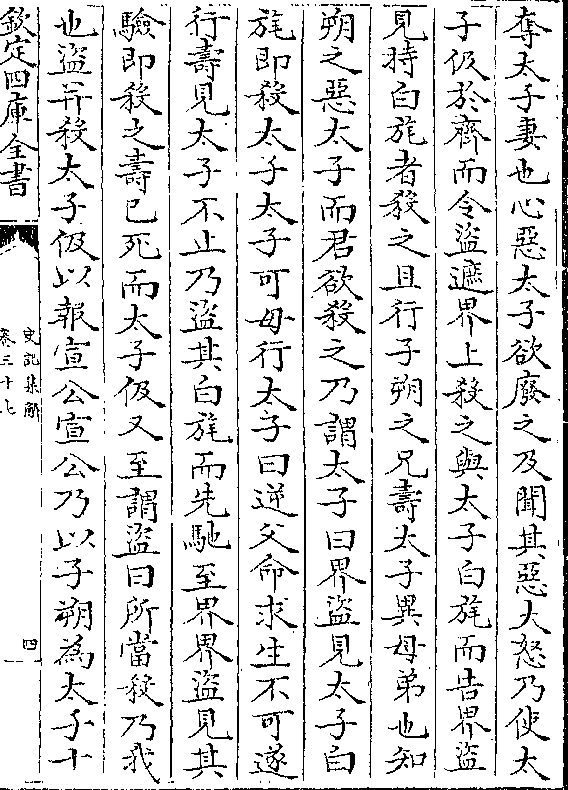 奪太子妻也心惡太子欲廢之及聞其惡大怒乃使太
子伋於齊而令盜遮界上殺之與太子白旄而告界盜
見持白旄者殺之且行子朔之兄壽太子異母弟也知
朔之惡太子而君欲殺之乃謂太子曰界盜見太子白
旄即殺太子太子可毋行太子曰逆父命求生不可遂
行壽見太子不止乃盜其白旄而先馳至界界盜見其
驗即殺之壽已死而太子伋又至謂盜曰所當殺乃我
也盜并殺太子伋以報宣公宣公乃以子朔為太子十
欽定四庫全書
史記集解
卷三十七
四